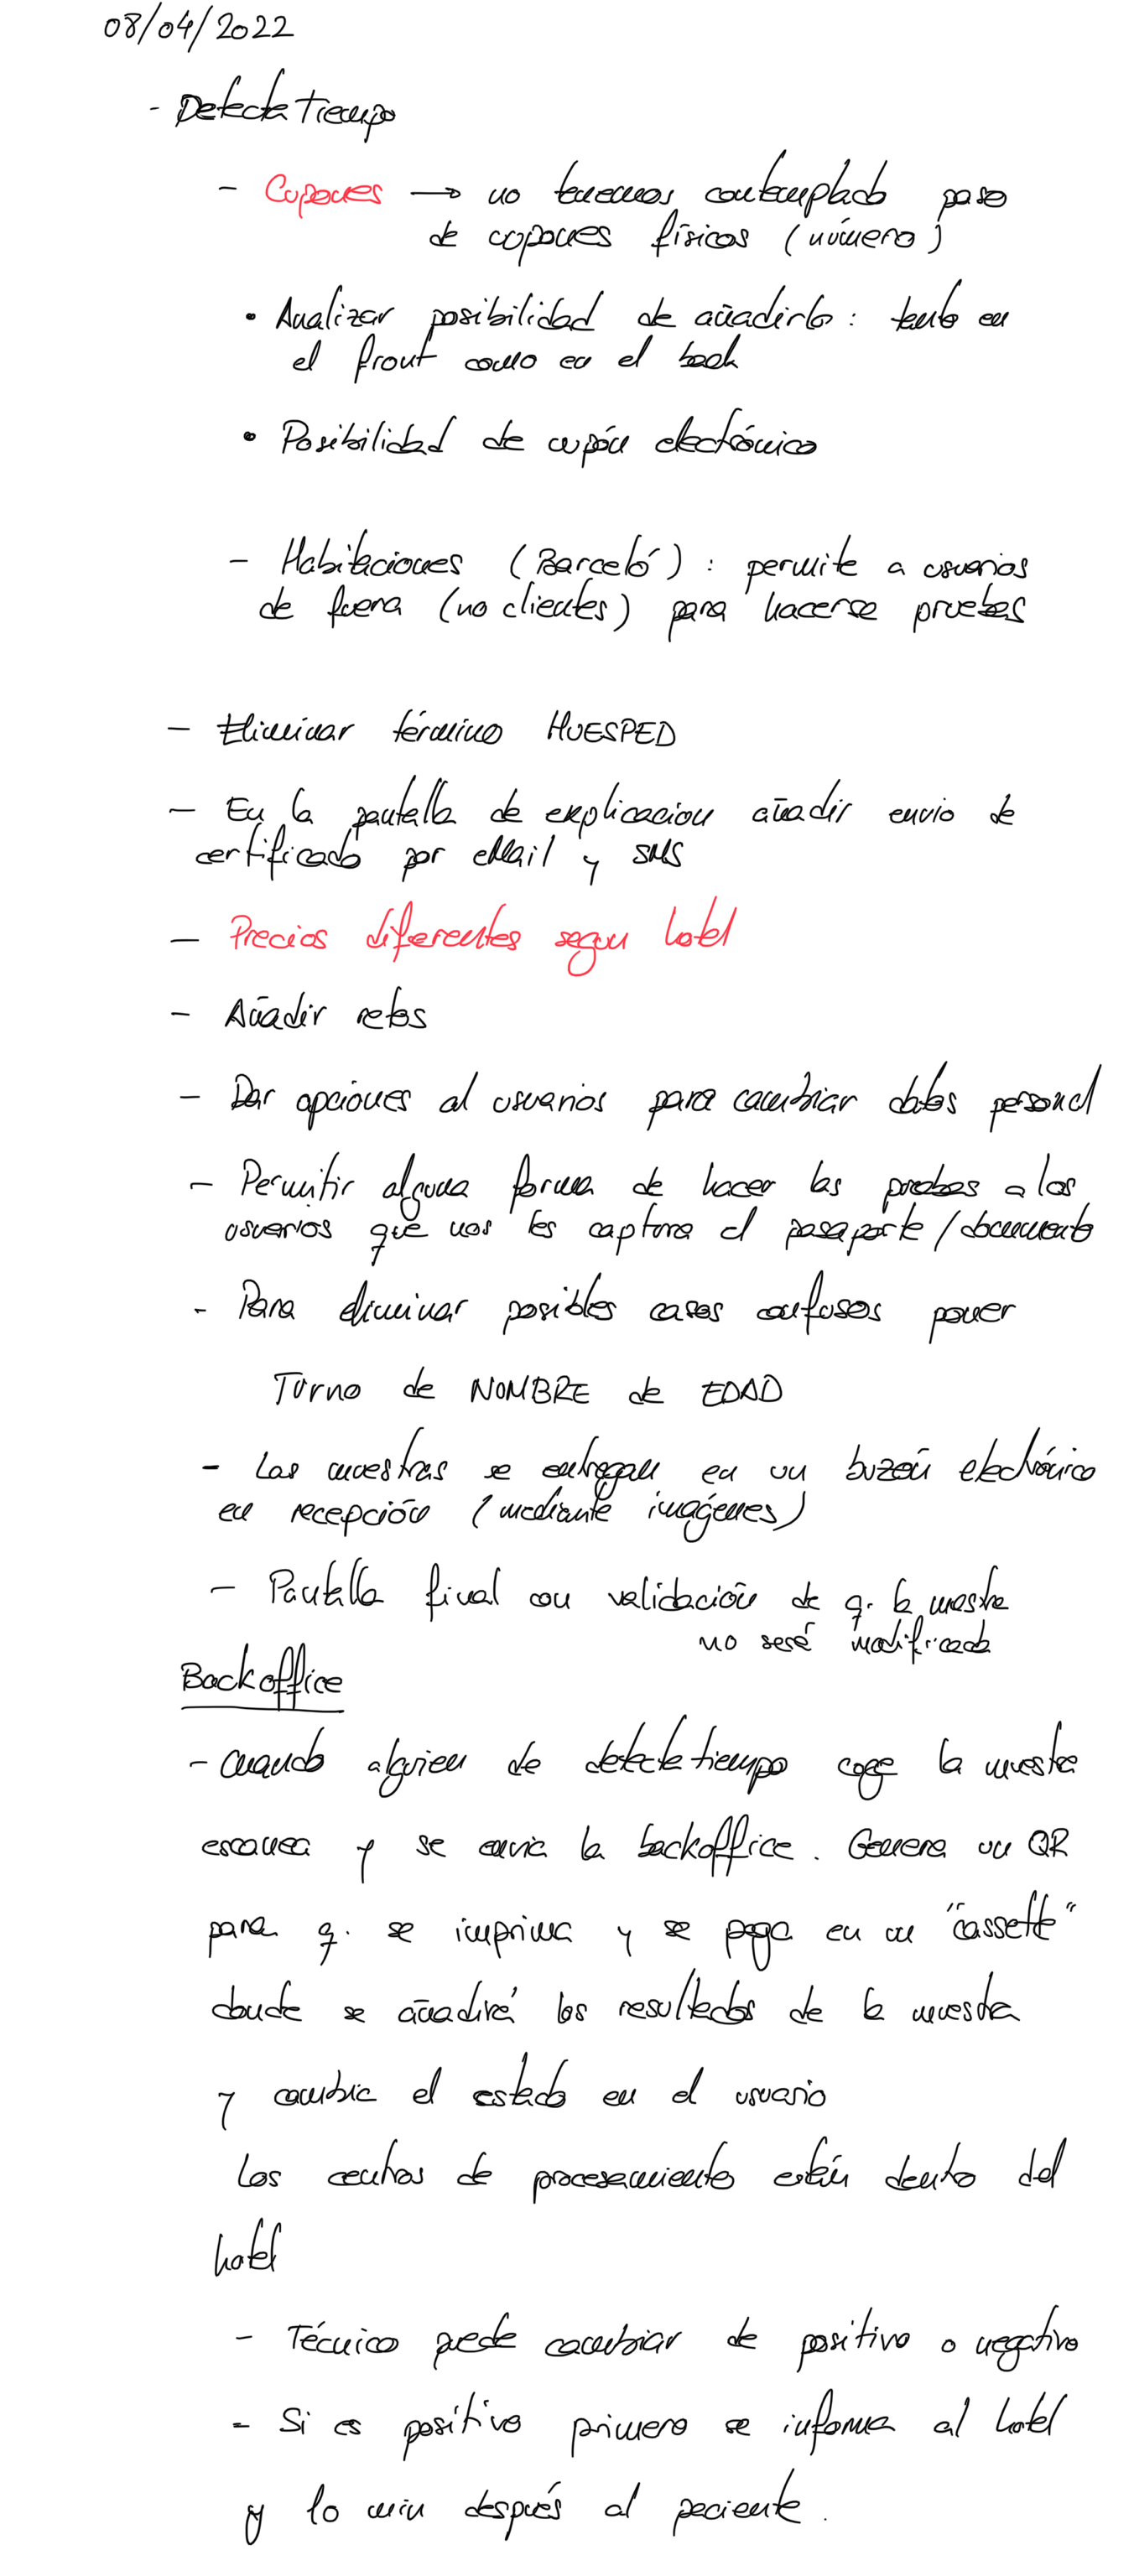 08/04/2022
- Detecta Tiempo
- Cupones → no tenemos contemplado paso
de cupones físicos (número)
• Analizar posibilidad de añadirlo: tanto en
el front como en el back
• Posibilidad de cupón electrónico
- Habitaciones (Barceló): permite a usuarios
de fuera (no clientes) para hacerse pruebas
- Eliminar término HUESPED
- En la pantalla de explicacion añadir envio de
certificado por eMail y SMS
- Precios diferentes segun hotel
- Añadir retos
- Dar opciones al usuarios para cambiar datos personal
- Permitir alguna forma de hacer las pruebas a los
usuarios que nos les captura el pasaporte/documento
- Para eliminar posibles casos confusos poner
Turno de NOMBRE de EDAD
- Las muestras se entregan en un buzón electrónico
en recepción (mediante imágenes)
- Pantalla final con validación de q. la muestra
no será modificada
Backoffice
- Cuando alguien de detectatiempo coge la muestra
escanea y se envia la backoffice. Genera un QR
para q. se imprima y se pega en un "cassette"
donde se añadirá los resultados de la muestra
y cambia el estado en el usuario
Los centros de procesamiento están dentro del
hotel
- Técnico puede cambiar de positivo o negativo
- Si es positivo primero se informa al hotel
y 10 min después al paciente.